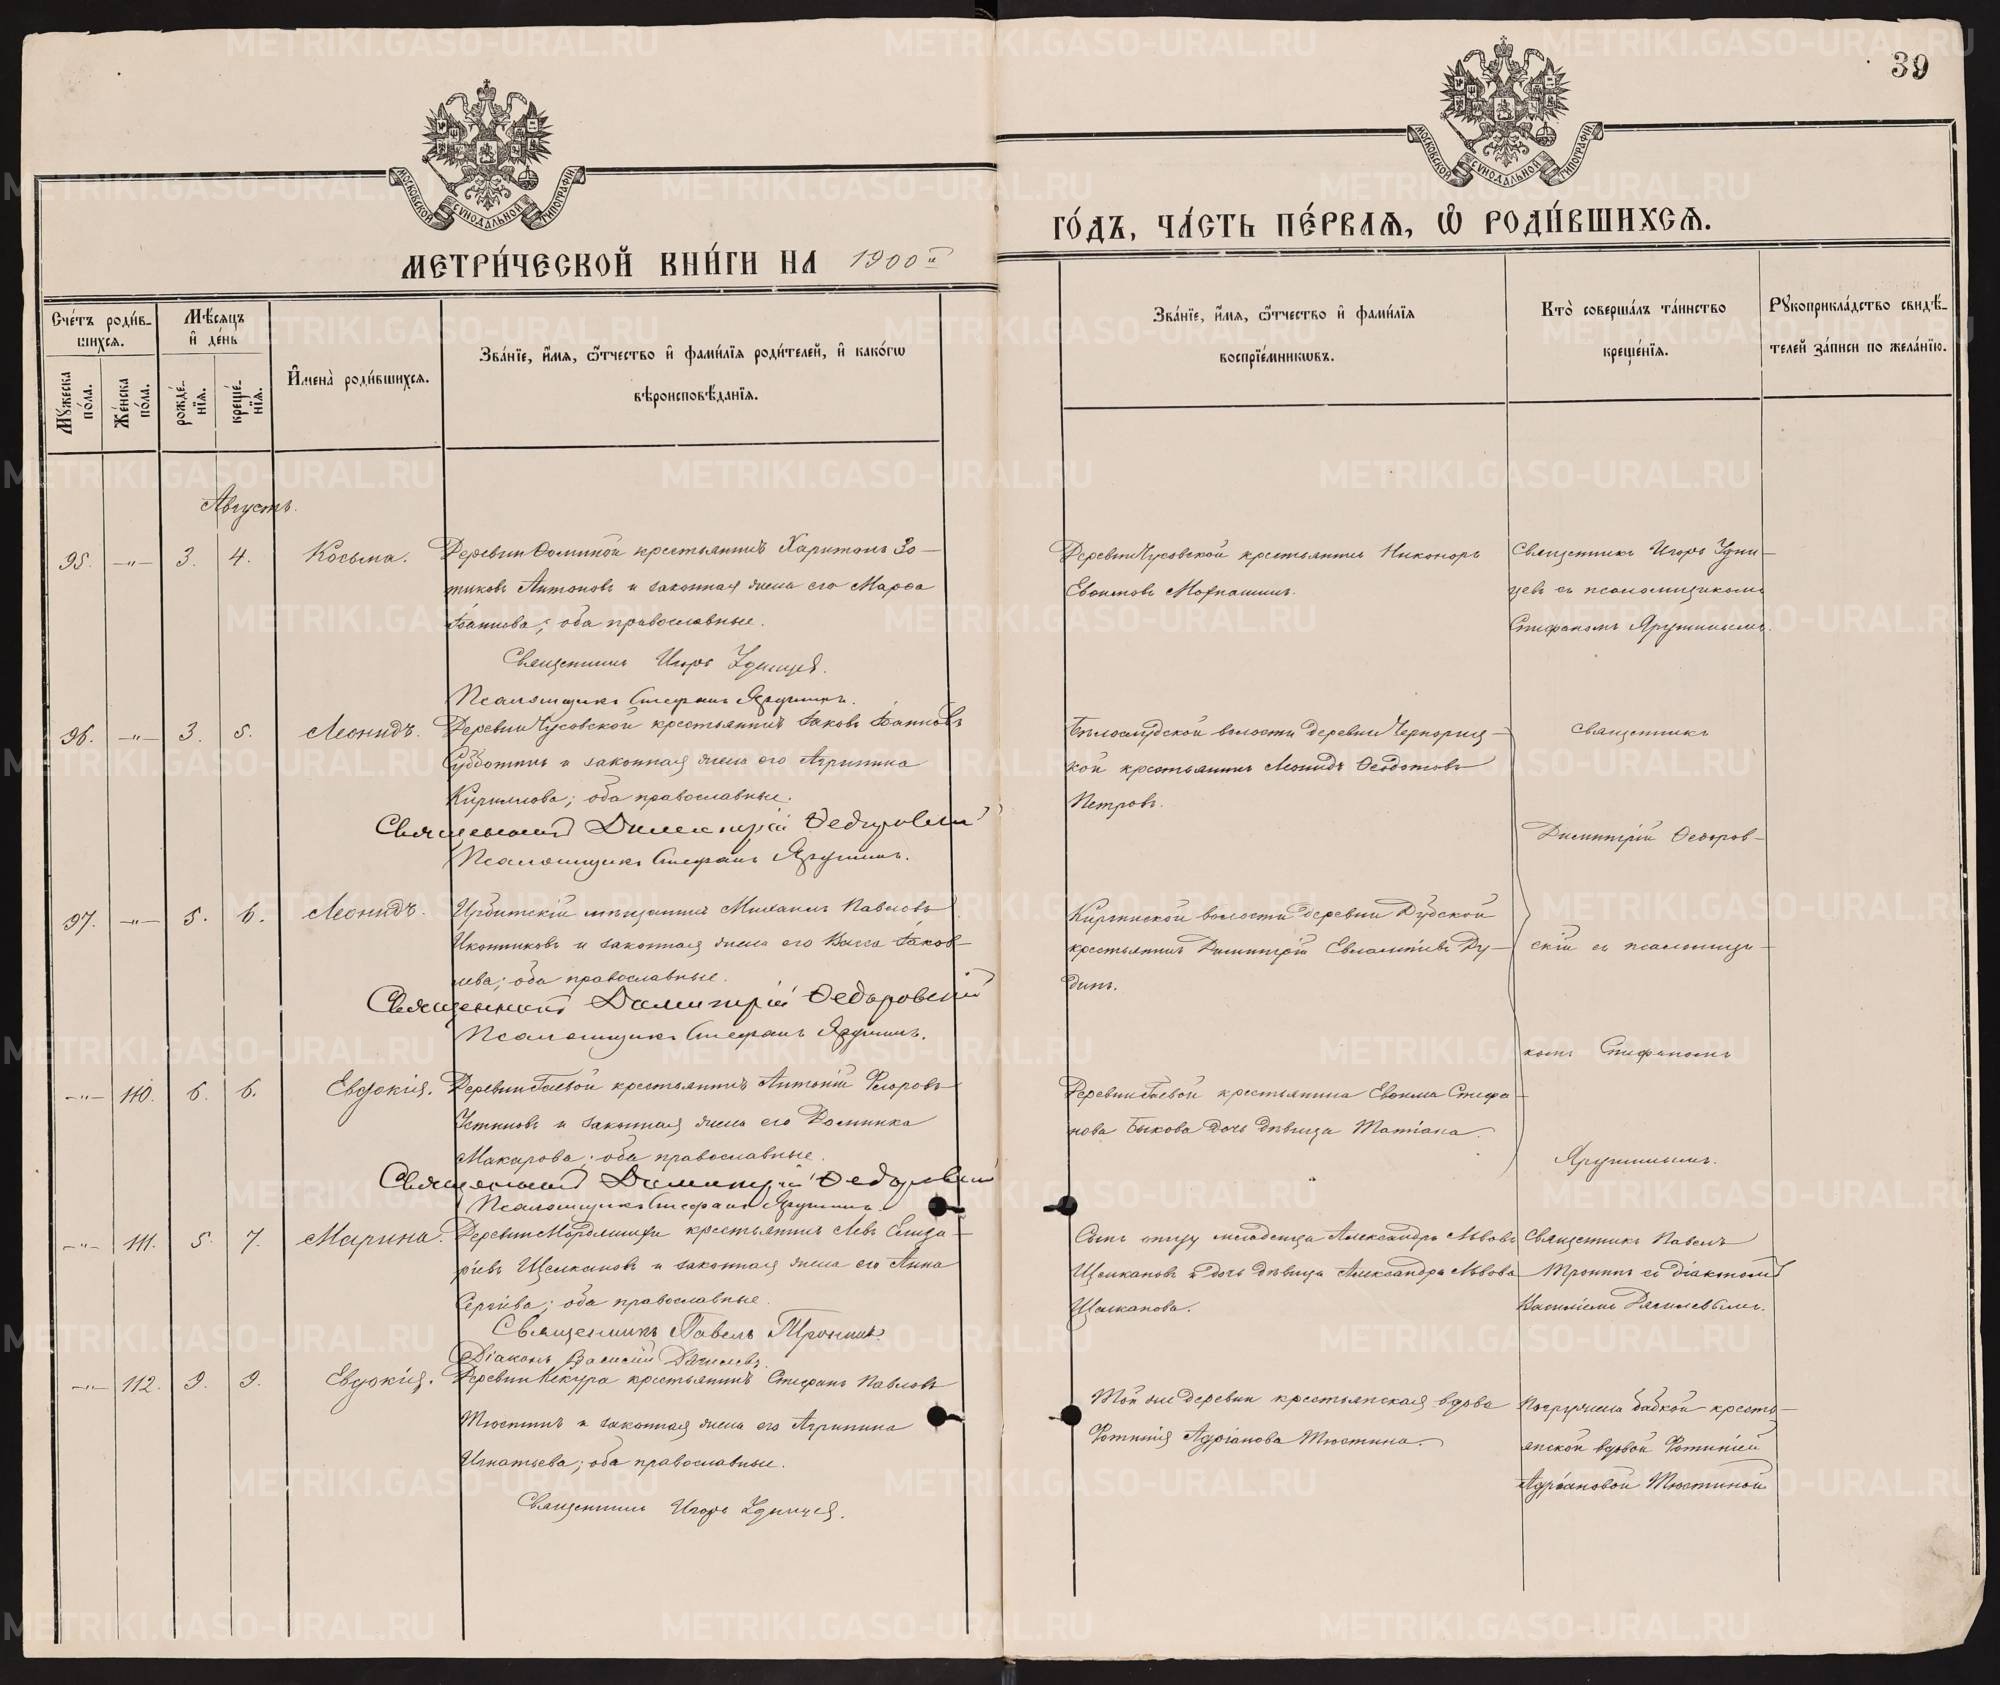 39
МОСКОВСКОЙ СУНОДАЛЬНОЙ ТИПОГРАФІИ
МОСКОВСКОЙ СУНОДАЛЬНОЙ ТИПОГРАФІИ
МЕТРИ́ЧЕСКОЙ КНИ́ГИ НА 1900й
ГО́ДЪ, ЧА́СТЬ ПЕ́РВАЯ, Ѽ РОДИ́ВШИХСЯ.
Сче́тъ роди́в-
шихся.
Мꙋжеска по́ла.
Же́нска по́ла.
Мѣ́сяцъ и де́нь
рожде́-нїя.
креще́-нїя.
Имена̀ роди́вшихся.
Зва́нїе, и́мя, ѻ҆́тчество и фами́лїя роди́телей, и како́гѡ
вѣроисповѣ́данїя.
Зва́нїе, и́мя, ѻ҆́тчество и фами́лїя
воспрїе́мникѡвъ.
Кто̀ соверша́лъ та́инство
креще́нїя.
Рꙋкоприкла́дство свидѣ́-
телей за́писи по жела́нїю.
Августъ.
95. —"— 3. 4. Косьма.
Деревни Ѳоминой крестьянинъ Харитонъ Зо-
тиковъ Антоновъ и законная жена его Марѳа
Іоаннева; оба православные.
Священникъ Игорь Удинцев.
Псаломщикъ Стефанъ Яружинъ.
Деревни Чусовской крестьянинъ Никоноръ
Евѳимовъ
Священникъ Игорь Удин-
цевъ съ псаломщикомъ
Стефаномъ Яружинымъ.
96. —"— 3. 5. Леонидъ.
Деревни Чусовской крестьянинъ Іаковъ Іоанновъ
Субботинъ и законная жена его Агрипина
Кириллова; оба православные.
Священникъ Димитрій Ѳедоровскій
Псаломщикъ Стефанъ Яружинъ.
Бѣлослудской волости деревни
крестьянинъ Леонидъ Ѳеодотовъ
Петровъ.
Священникъ
Димитрій Ѳедоров-
97. —"— 5. 6. Леонидъ.
Ирбитскій мѣщанинъ Михаилъ Павловъ
Иконниковъ и законная жена его Васса Іаков-
лева; оба православные.
Священникъ Димитрій Ѳедоровскій
Псаломщикъ Стефанъ Яружинъ.
Киргинской волости деревни Дубской
крестьянинъ Димитрій Евлампіевъ Ду-
динъ.
скій съ псаломщи-
—"— 110. 6. 6. Евдокія.
Деревни Гаевой крестьянинъ Антоній Флоровъ
Устиновъ и законная жена его Домника
Макарова; оба православные.
Священникъ Димитрій Ѳедоровскій
Псаломщикъ Стефанъ Яружинъ.
Деревни Гаевой крестьянина Евѳима Стефа-
нова Быкова дочь дѣвица Татіана.
комъ Стефаномъ
Яружинымъ.
—"— 111. 5. 7. Марина.
Деревни крестьянинъ Левъ Елиза-
ріевъ Щелкановъ и законная жена его Анна
Сергіева; оба православные.
Священникъ Павелъ Тронинъ.
Діаконъ Василій Дягилевъ.
Сынъ отцу младенца Александръ Львовъ
Щелкановъ и дочь дѣвица Александра Львова
Щелканова.
Священникъ Павелъ
Тронинъ съ діакономъ
Василіемъ Дягилевымъ.
—"— 112. 9. 9. Евдокія.
Деревни Кекура крестьянинъ Стефанъ Павловъ
Тюстинъ и законная жена его Агрипина
Игнатьева; оба православные.
Священникъ Игорь Удинцев.
Той же деревни крестьянская вдова
Фотинія Адріанова Тюстина.
Погружена бабкой кресть-
янской вдовой Фотиніей
Адріановой Тюстиной
METRIKI.GASO-URAL.RU